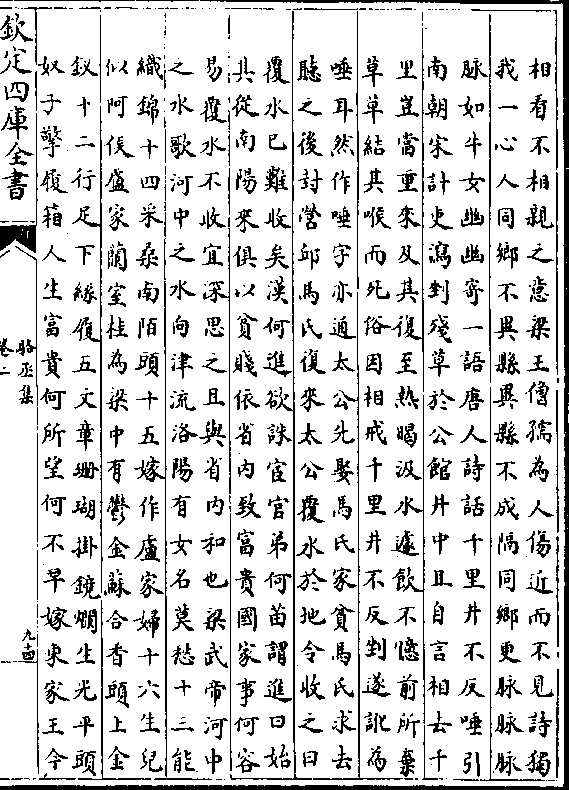 相看不相親之意梁王僧孺為人傷近而不見詩獨
我一心人同鄉不異縣異縣不成隔同鄉更脉脉脉
脉如牛女幽幽寄一語唐人詩話千里井不反唾引
南朝宋計吏瀉剉殘草於公館井中且自言相去千
里豈當重來及其復至熱暍汲水遽飲不憶前所棄
草草結其喉而死俗因相戒千里井不反剉遂訛為
唾耳然作唾字亦通太公先娶馬氏家貧馬氏求去
聽之後封營邱馬氏復來太公覆水於地令收之曰
覆水已難收矣漢何進欲誅宦官弟何苗謂進曰始
其從南陽來俱以貧賤依省内致富貴國家事何容
易覆水不收宜深思之且與省内和也梁武帝河中
之水歌河中之水向津流洛陽有女名莫愁十三能
織錦十四采桑南陌頭十五嫁作盧家婦十六生兒
似阿侯盛家蘭室桂為梁中有鬱金蘇合香頭上金
釵十二行足下絲履五文章珊瑚掛鏡爛生光平頭
奴子擎履箱人生富貴何所望何不早嫁東家王今
欽定四庫全書
駱丞集
卷二
九十四